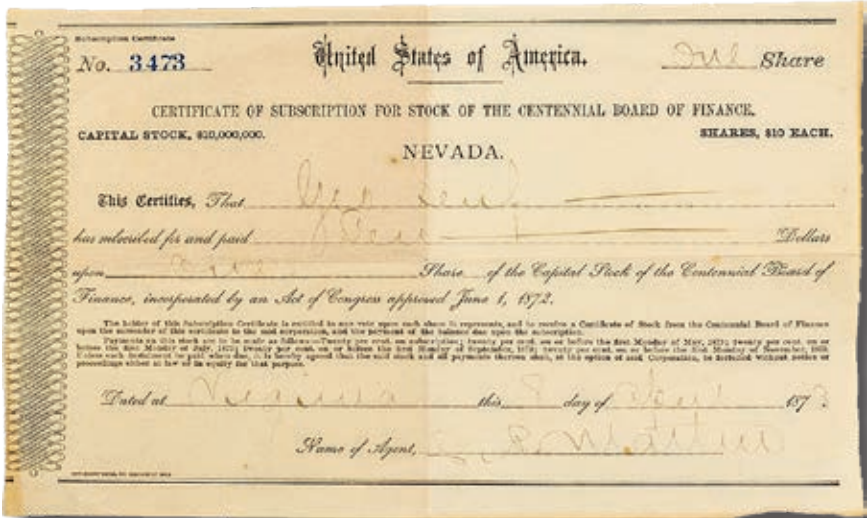 Subscription Certificate
No. 3473 United States of America. One Share
CERTIFICATE OF SUBSCRIPTION FOR STOCK OF THE CENTENNIAL BOARD OF FINANCE.
CAPITAL STOCK, $10,000,000. SHARES, $10 EACH.
NEVADA.
This Certifies, That Geo
has subscribed for and paid Dollars
upon One Share of the Capital Stock of the Centennial Board of
Finance, incorporated by an Act of Congress approved June 1, 1872.
The holder of this Subscription Certificate is entitled to one vote upon each share it represents, and to receive a Certificate of Stock from the Centennial Board of Finance
upon the surrender of this certificate to the said corporation, and the payment of the balance due upon the subscription.
Payments on this stock are to be made as follows:—Twenty per cent. on subscription; twenty per cent. on or before the first Monday of May, 1873; twenty per cent. on or
before the first Monday of July, 1873; twenty per cent. on or before the first Monday of September, 1873; twenty per cent. on or before the first Monday of November, 1873.
Unless each instalment be paid when due, it is hereby agreed that the said stock and all payments thereon shall, at the option of said Corporation, be forfeited without notice or
proceedings either at law or in equity for that purpose.
Dated at Virginia this 8 day of April 1873
Name of Agent,